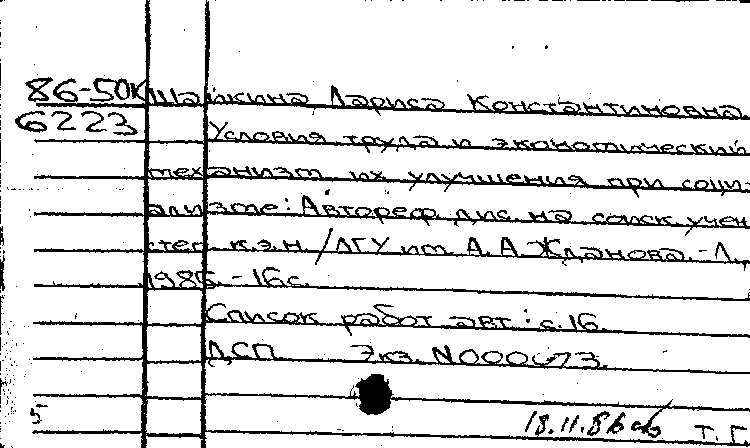 86-50К Шайкина Лариса Константиновна
6223 Условия труда и экономический
механизм их улучшения при соци-
ализме: Автореф. дис. на соиск. учен.
степ. к.э.н. / ЛГУ им. А. А. Жданова. - Л.,
1986. - 16 с.
Список работ авт.: с. 16.
ДСП Экз. N000073.
5 18.11.86 Т. Г